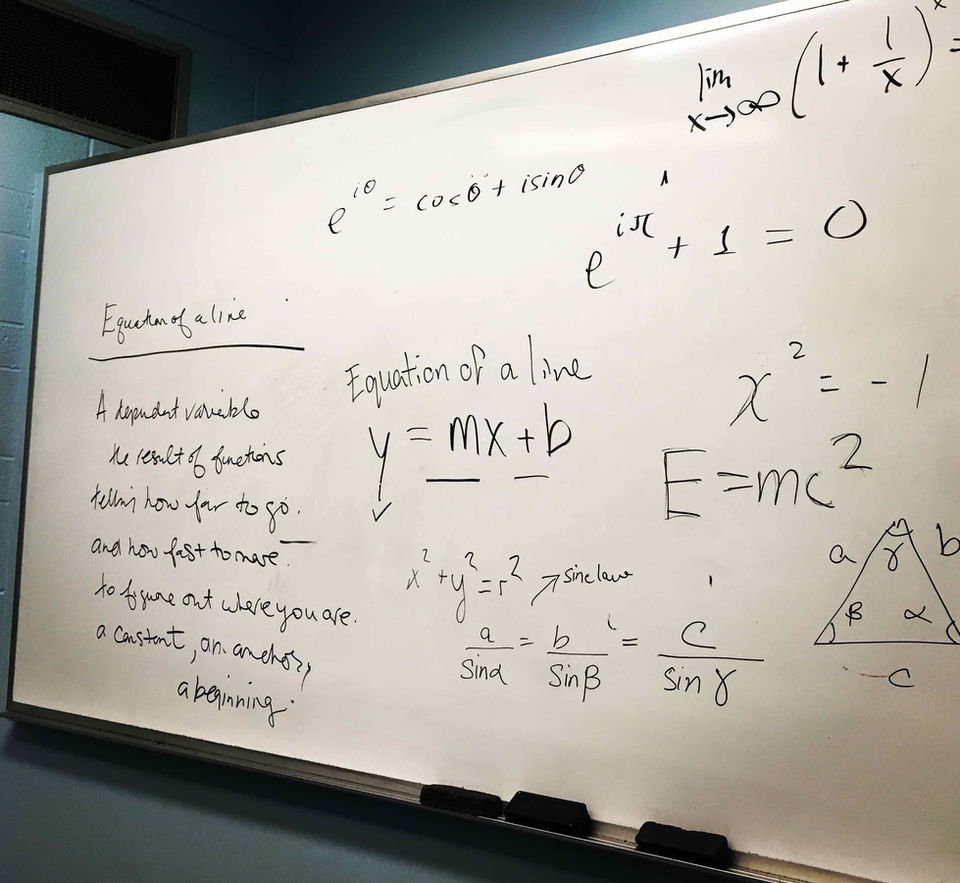 lim x→∞ (1 + 1/x)^x =
e^iθ = cosθ + isinθ
e^iπ + 1 = 0
Equation of a line
A dependent variable
the result of functions
telling how far to go.
and how fast to move.
to figure out where you are.
a constant, an anchor,
a beginning.
Equation of a line
y = mx + b
x² = -1
E = mc²
x² + y² = r²
sine law
a/sinα = b/sinβ = c/sinγ
a γ b
β α
c